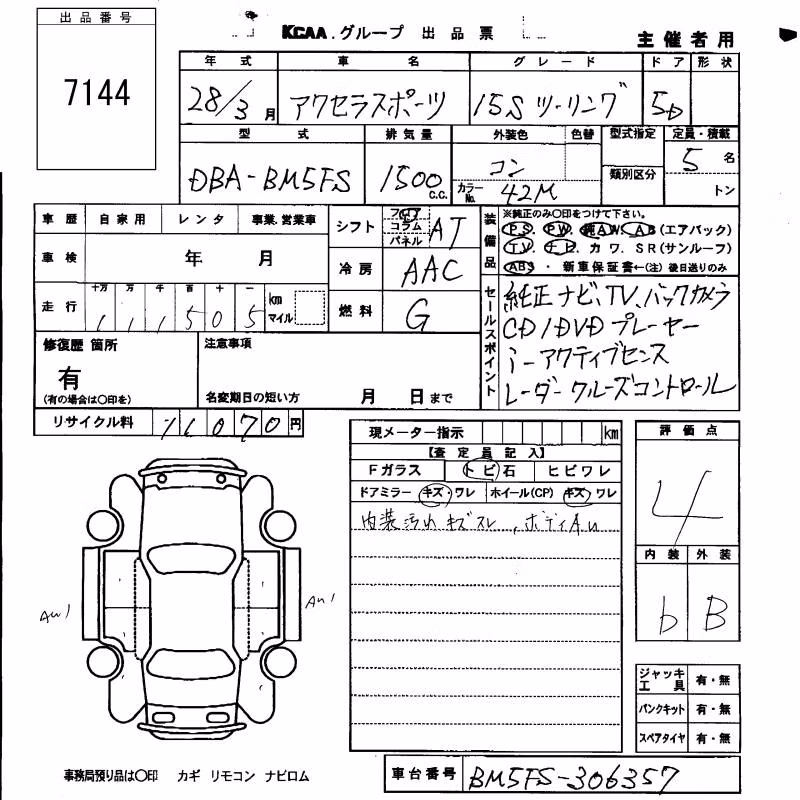 出品番号
7144
KCAA.グループ 出品票
主催者用
年式 車名 グレード ドア 形状
28/3月 アクセラスポーツ 15S ツーリング 5D
型式 排気量 外装色 色替 型式指定 定員・積載
類別区分
DBA-BM5FS 1500 c.c. コン カラーNo. 42M 5名
トン
車歴 自家用 レンタ 事業.営業車
車検 年 月
走行 十万 万 千 百 十 一 km マイル
1 1 1 5 0 5
シフト フロア コラム パネル AT
冷房 AAC
燃料 G
装備品
※純正のみ〇印をつけて下さい。
P.S. P.W. 純A.W. A.B(エアバック)
T.V. ナビ. カワ. SR(サンルーフ)
ABS ・ 新車保証書←(注) 後日送りのみ
セールスポイント
純正ナビ、TV、バックカメラ
CD/DVDプレーヤー
i-アクティブセンス
レーダークルーズコントロール
修復歴 箇所
有
(有の場合は〇印を)
注意事項
名変期日の短い方 月 日まで
リサイクル料 11070円
現メーター指示 km
【査定員記入】
Fガラス トビ石 ヒビワレ
ドアミラー キズ・ワレ ホイール(CP) キズ・ワレ
内装汚れキズスレ、ボディAu
評価点
4
内装 外装
b B
ジャッキ工具 有・無
パンクキット 有・無
スペアタイヤ 有・無
AW1
AW1
事務局預り品は〇印 カギ リモコン ナビロム
車台番号 BM5FS-306357